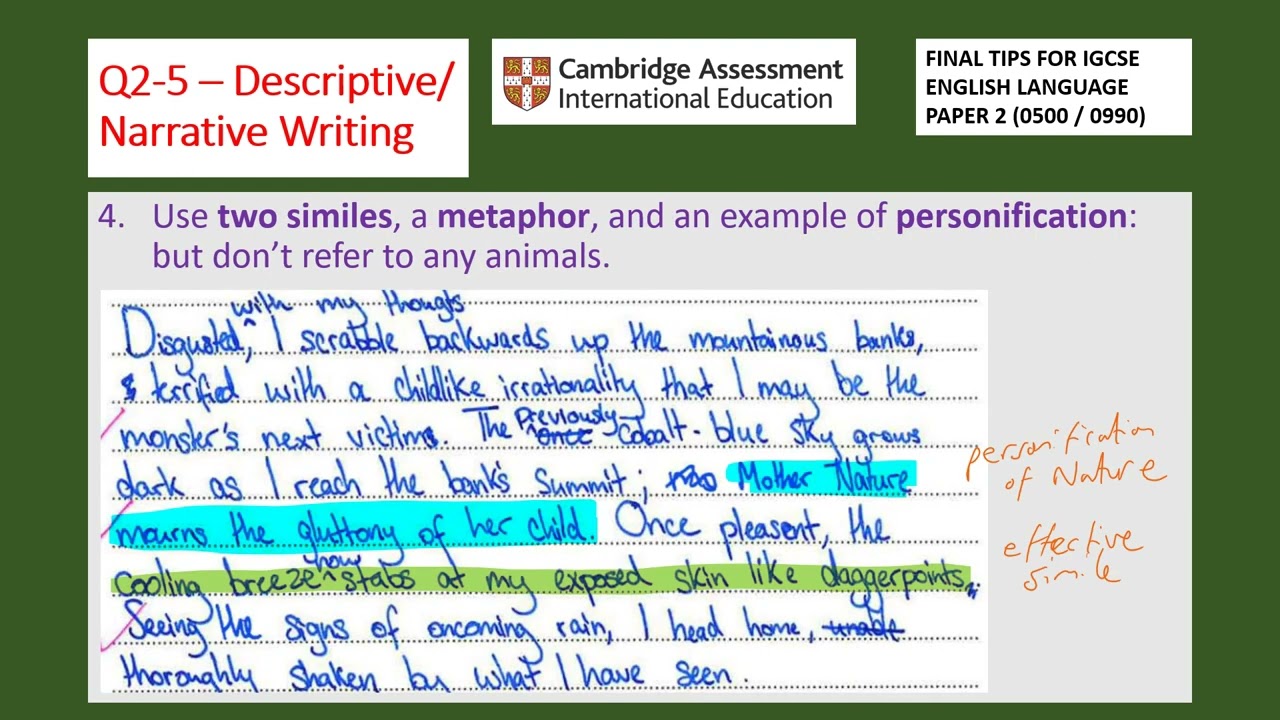 Q2-5 – Descriptive/
Narrative Writing
Cambridge Assessment
International Education
FINAL TIPS FOR IGCSE
ENGLISH LANGUAGE
PAPER 2 (0500 / 0990)
4. Use two similes, a metaphor, and an example of personification:
but don't refer to any animals.
with my thougts
Disgusted ^, I scrabble backwards up the mountainous banks,
terrified with a childlike irrationality that I may be the
previously
monster's next victim. The ^ once cobalt-blue sky grows
dark as I reach the bank's summit; Mother Nature
mourns the gluttony of her child. Once pleasant, the
now
cooling breeze ^ stabs at my exposed skin like daggerpoints.
Seeing the signs of oncoming rain, I head home,
thoroughly shaken by what I have seen.
personification
of Nature
effective
simile